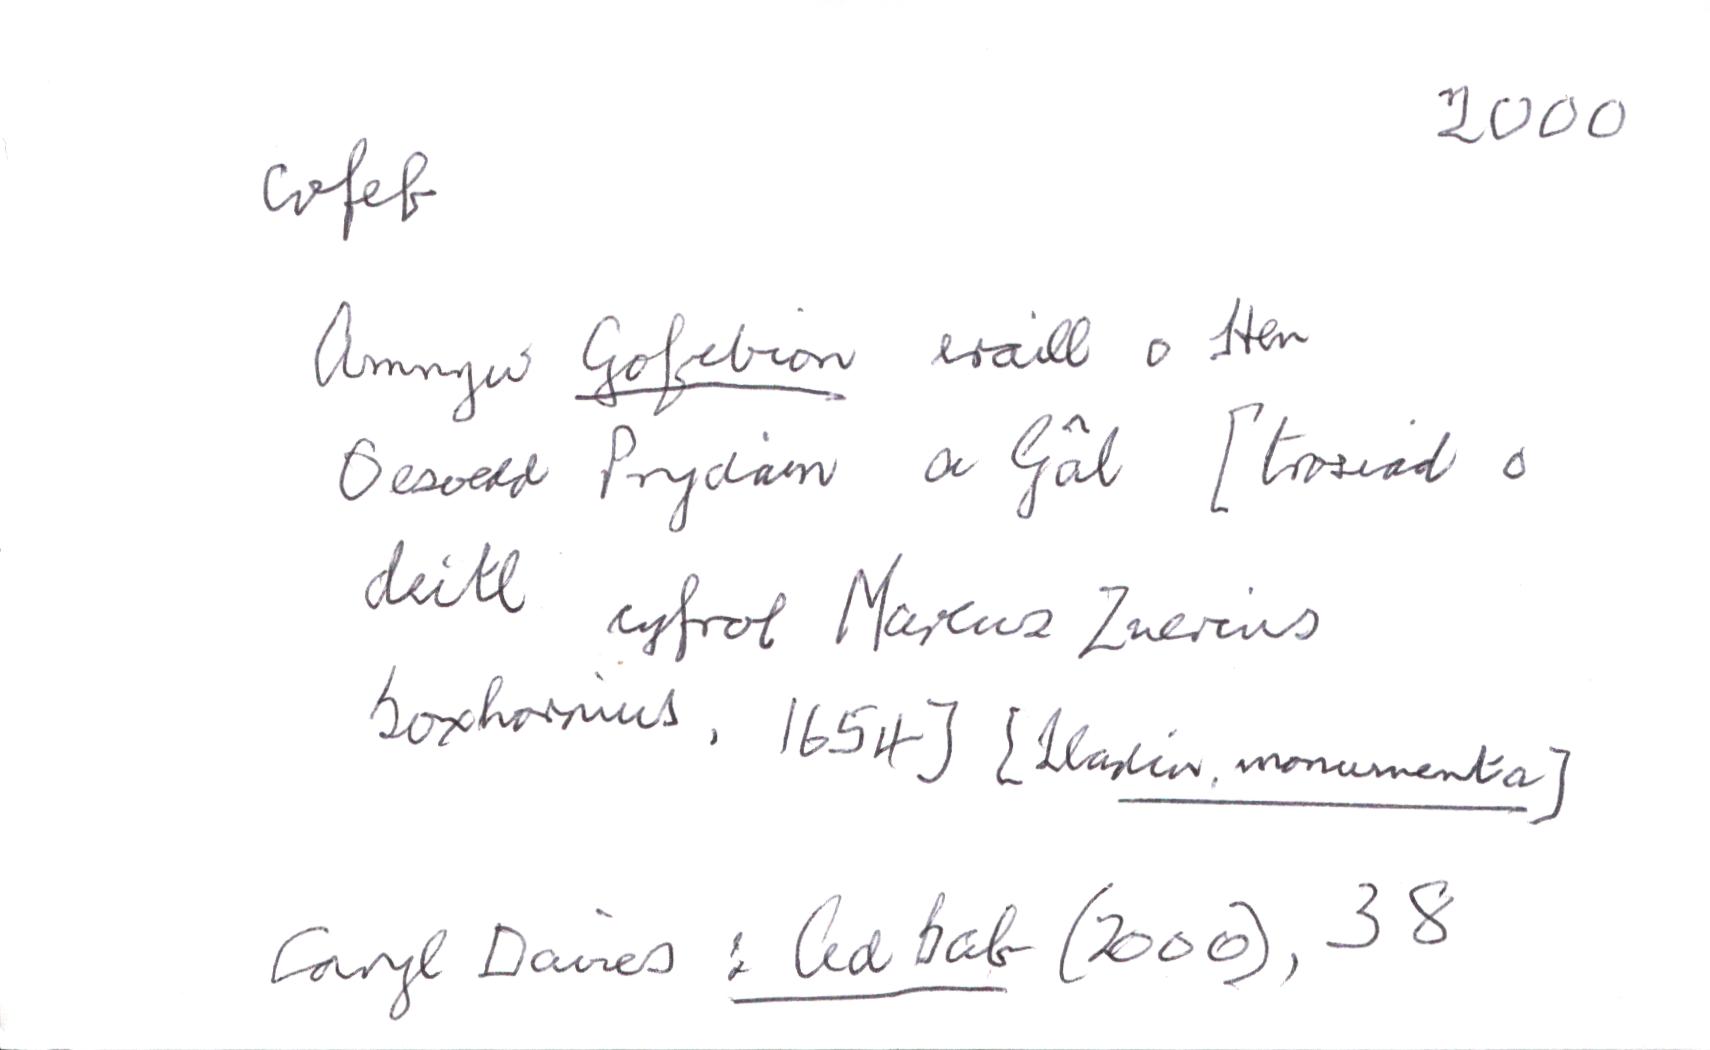 2000
cofeb
Amryw Gofebion eraill o Hen
Oesoedd Prydain a Gâl [trosiad o
deitl cyfrol Marcus Zuerius
boxhornius, 1654] [Lladin, monumenta]
Caryl Davies : Adbabel (2000), 38